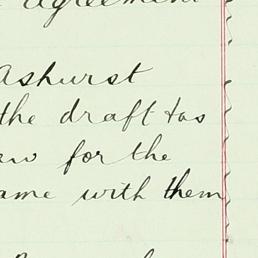 agreement
Ashurst
the draft has
for the
ame with them